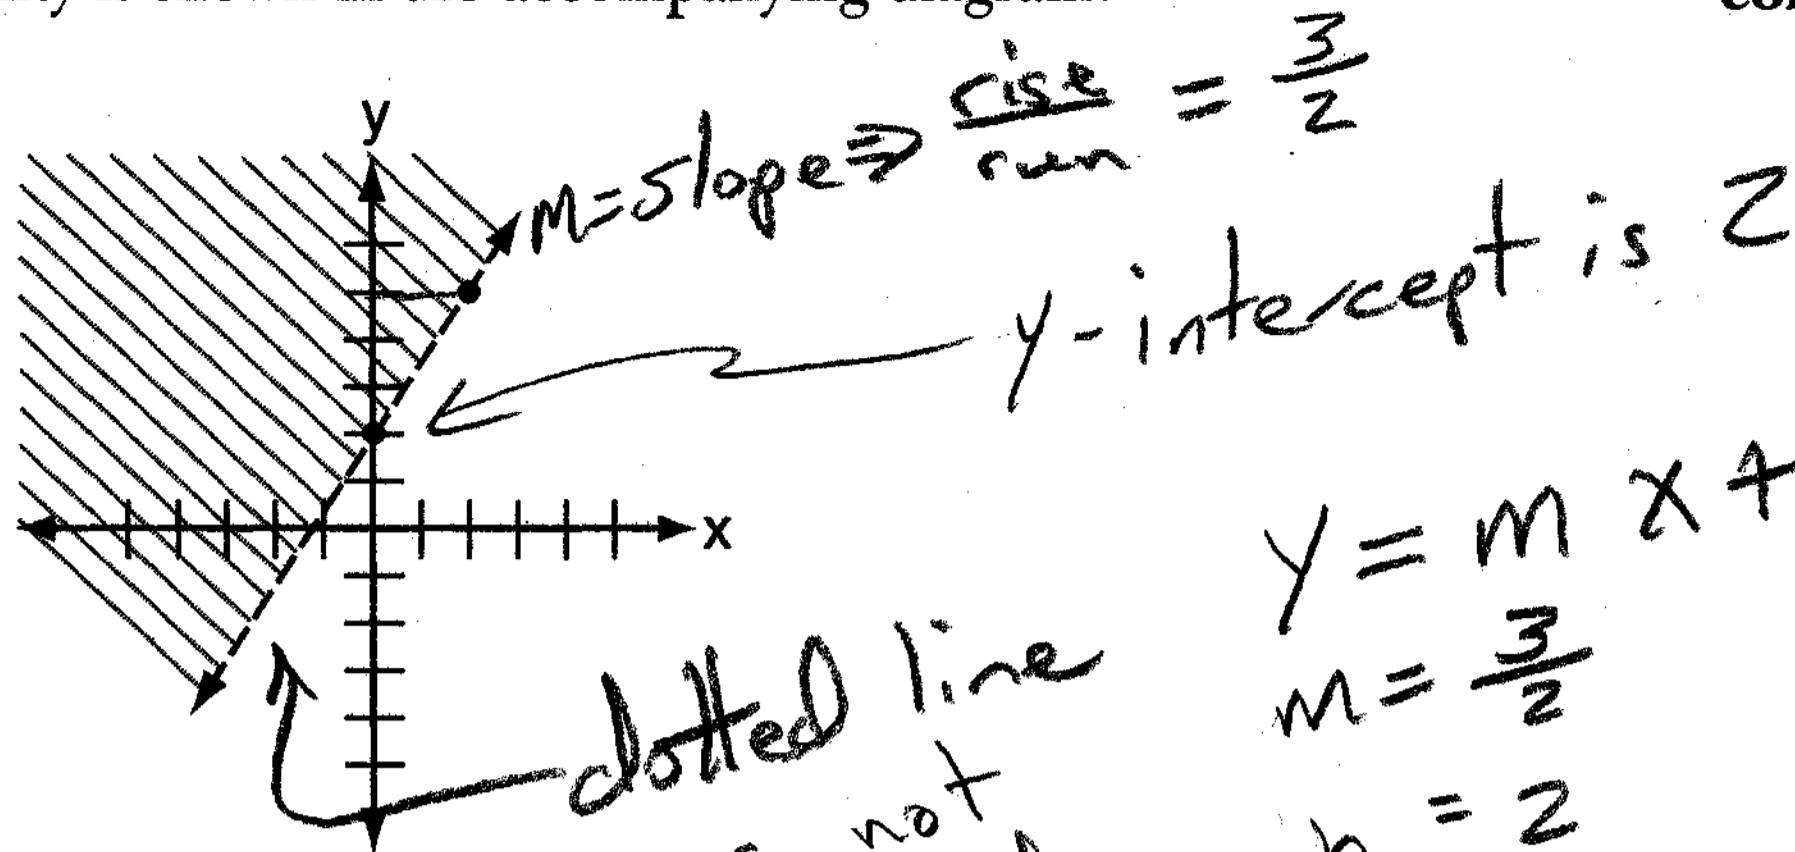 y
m=slope⇒ rise/run = 3/2
y-intercept is 2
x
y = m x +
m = 3/2
dotted line
not
= 2